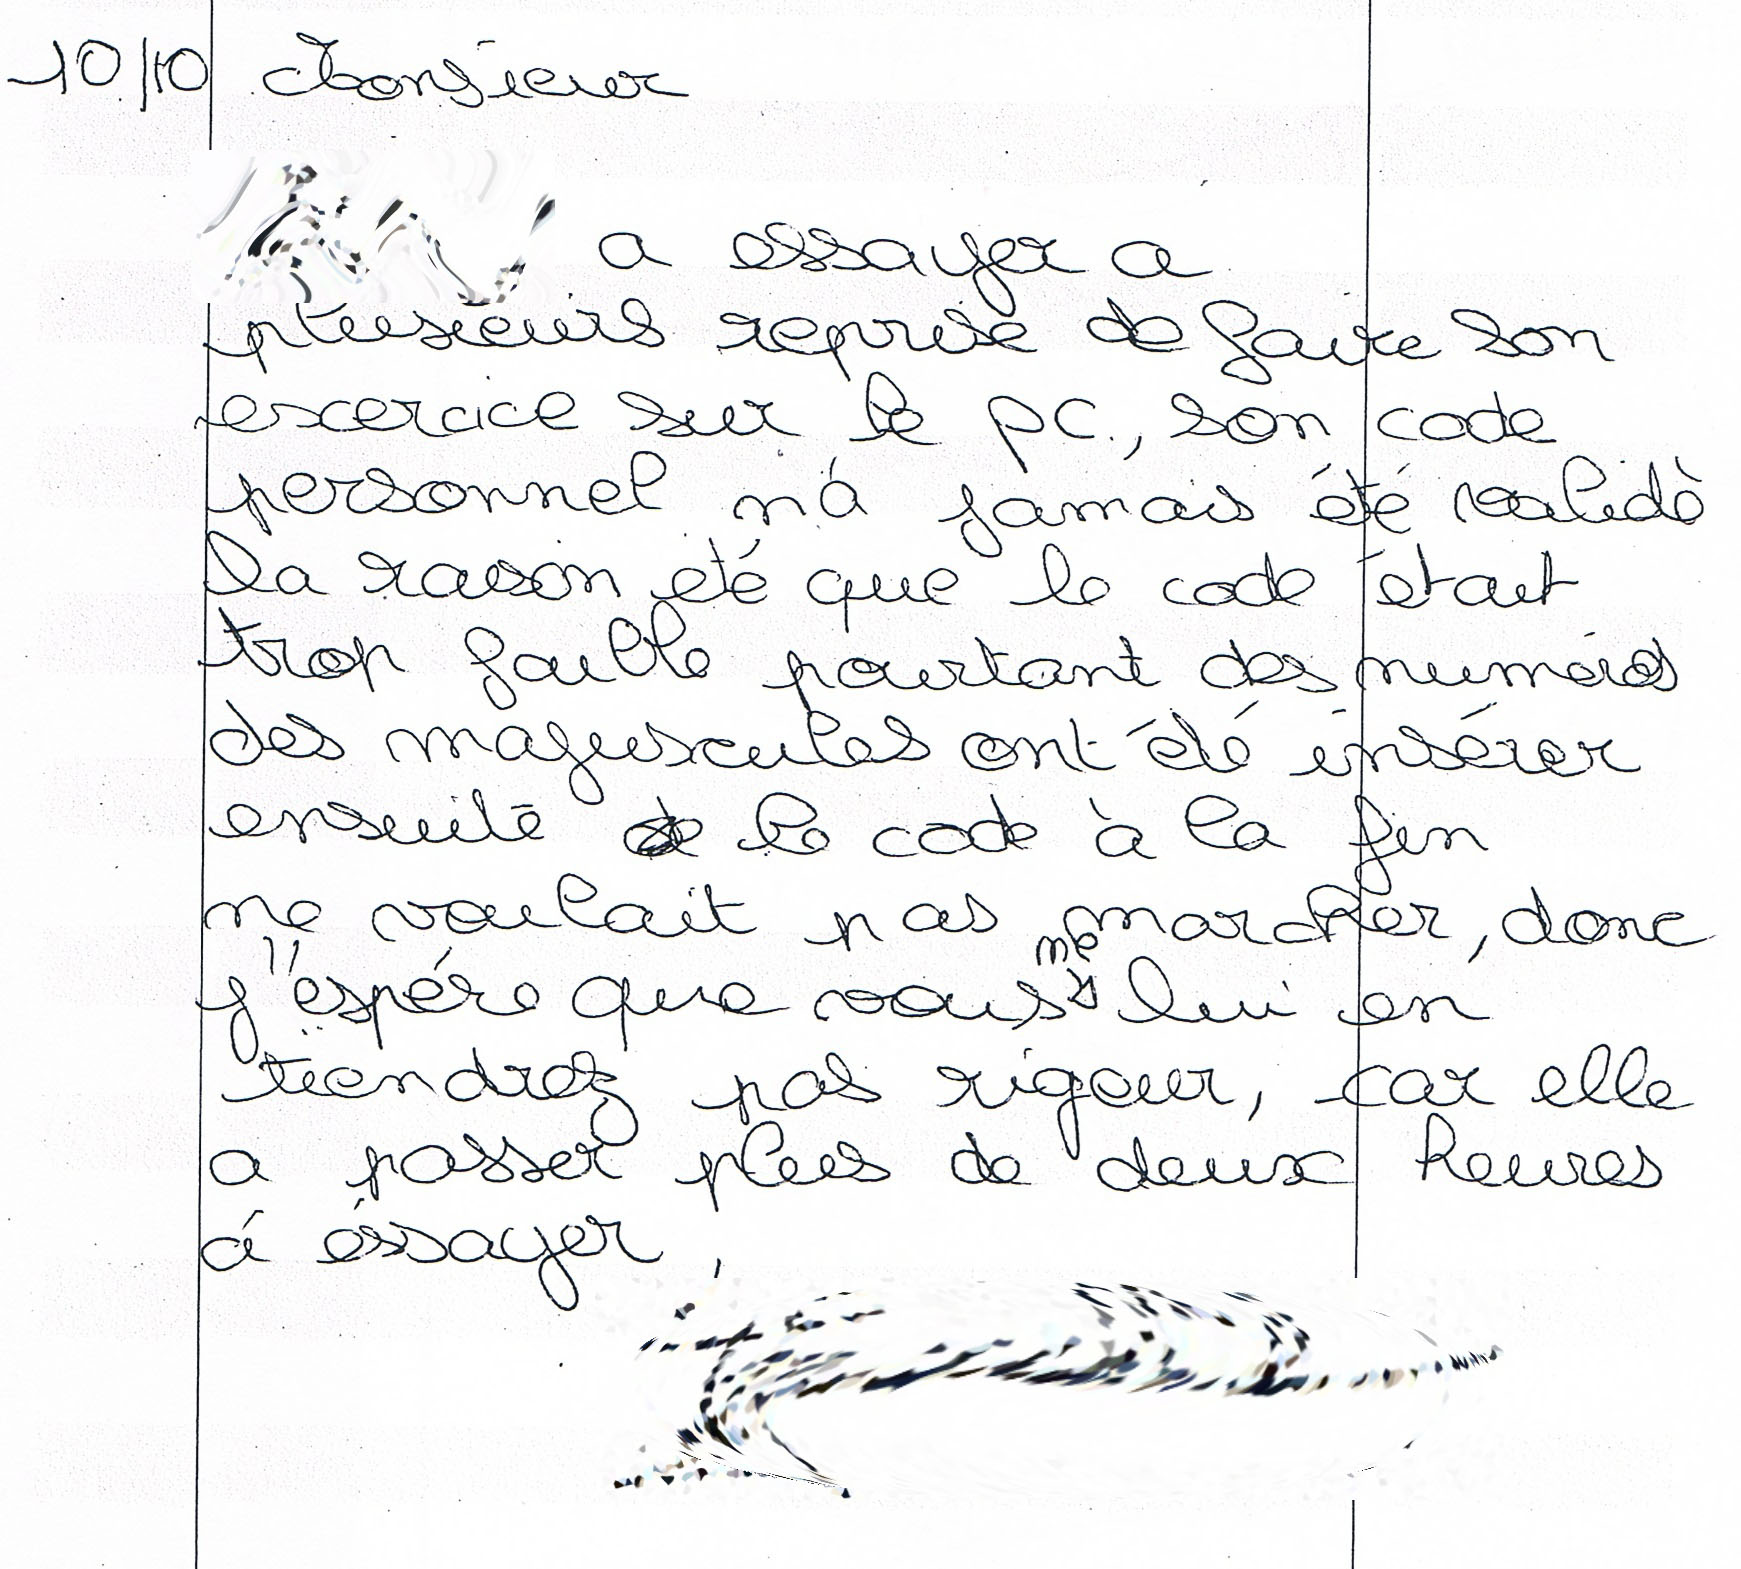 10/10 Monsieur
a essayer a
plusieurs reprise de faire son
excercice sur le pc, son code
personnel n'á jamais été validè
la raison eté que le code était
trop faible pourtant des numéros
des majuscules ont été insérer
ensuite le code à la fin
ne voulait pas marcher, donc
j'espére que vous ne lui en
tiendrez pas rigeur, car elle
a passer plus de deux heures
á éssayer,